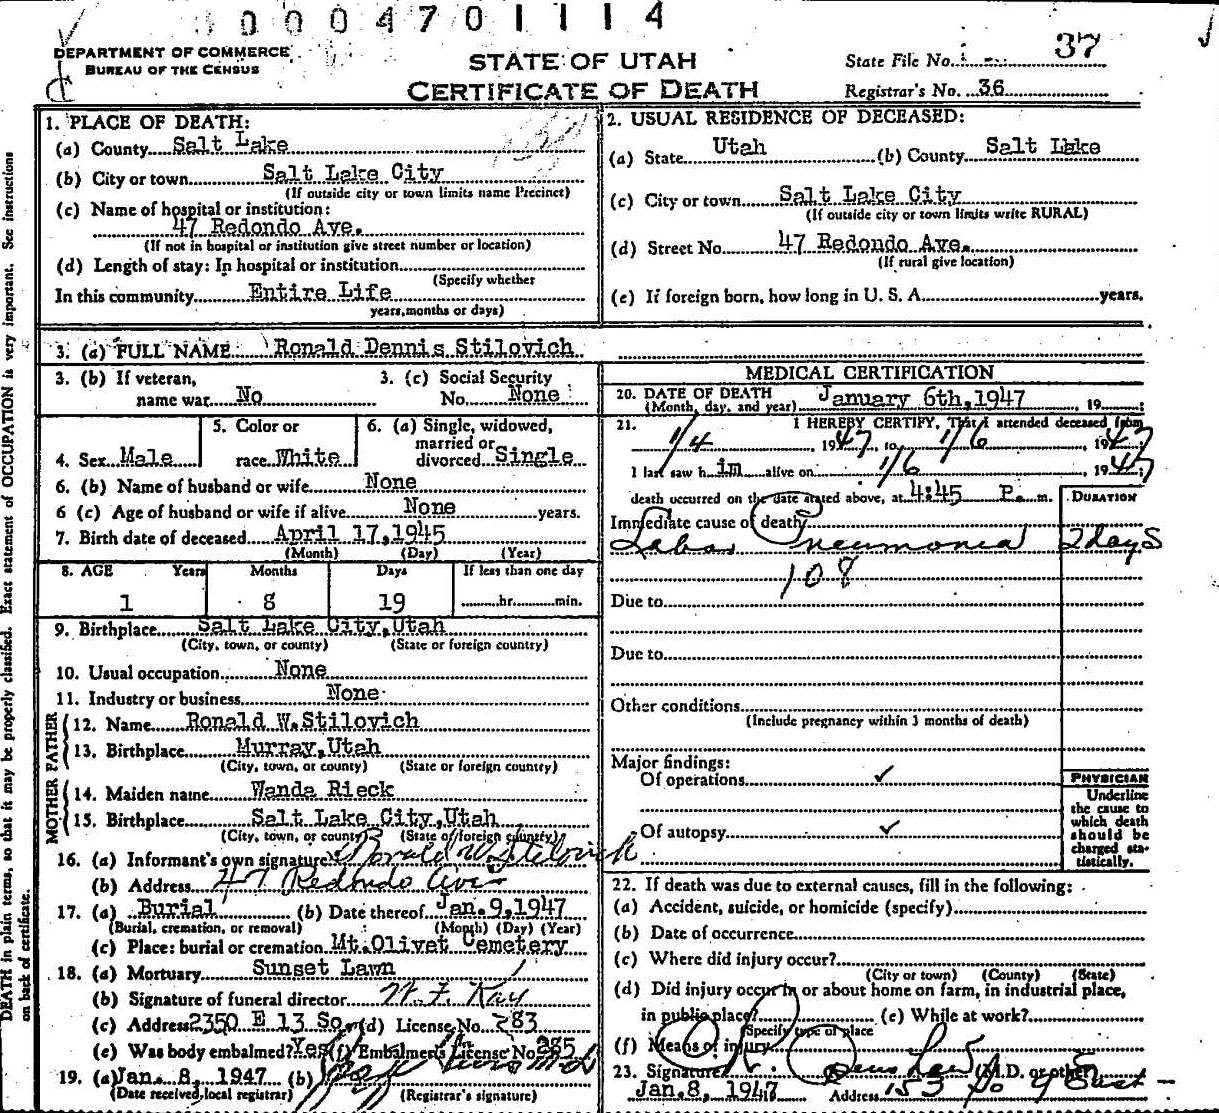 0000 4701114
DEPARTMENT OF COMMERCE
BUREAU OF THE CENSUS
STATE OF UTAH
CERTIFICATE OF DEATH
State File No. 37
Registrar's No. 36
1. PLACE OF DEATH:
(a) County Salt Lake
(b) City or town Salt Lake City
(If outside city or town limits name Precinct)
(c) Name of hospital or institution:
47 Redondo Ave.
(If not in hospital or institution give street number or location)
(d) Length of stay: In hospital or institution
(Specify whether
In this community Entire Life
years, months or days)
2. USUAL RESIDENCE OF DECEASED:
(a) State Utah (b) County Salt Lake
(c) City or town Salt Lake City
(If outside city or town limits write RURAL)
(d) Street No. 47 Redondo Ave.
(If rural give location)
(e) If foreign born, how long in U. S. A. years.
3. (a) FULL NAME Ronald Dennis Stilovich
3. (b) If veteran, name war No
3. (c) Social Security No. None
4. Sex Male
5. Color or race White
6. (a) Single, widowed, married or divorced Single
6. (b) Name of husband or wife None
6 (c) Age of husband or wife if alive None years.
7. Birth date of deceased April 17, 1945
(Month) (Day) (Year)
8. AGE Years Months Days If less than one day
1 8 19 hr. min.
9. Birthplace Salt Lake City, Utah
(City, town, or county) (State or foreign country)
10. Usual occupation None
11. Industry or business None
FATHER
12. Name Ronald W. Stilovich
13. Birthplace Murray, Utah
(City, town, or county) (State or foreign country)
MOTHER
14. Maiden name Wanda Rieck
15. Birthplace Salt Lake City, Utah
(City, town, or county) (State or foreign country)
16. (a) Informant's own signature Ronald W. Stilovich
(b) Address 47 Redondo Ave
17. (a) Burial (b) Date thereof Jan. 9, 1947
(Burial, cremation, or removal) (Month) (Day) (Year)
(c) Place: burial or cremation Mt. Olivet Cemetery
18. (a) Mortuary Sunset Lawn
(b) Signature of funeral director W. F. Kay
(c) Address 2350 E 13 So. (d) License No. 283
(e) Was body embalmed? Yes (f) Embalmer's License No. 285
19. (a) Jan. 8, 1947 (b)
(Date received local registrar) (Registrar's signature)
MEDICAL CERTIFICATION
20. DATE OF DEATH
(Month, day, and year) January 6th, 1947, 19
21. I HEREBY CERTIFY, That I attended deceased from
1/4, 1947, to 1/6, 1947;
I last saw h im alive on 1/6, 1947;
death occurred on the date stated above, at 4:45 P. m.
DURATION
Immediate cause of death
Lobar Pneumonia 2 days
108
Due to
Due to
Other conditions
(Include pregnancy within 3 months of death)
Major findings:
Of operations ✓
Of autopsy ✓
PHYSICIAN
Underline
the cause to
which death
should be
charged sta-
tistically.
22. If death was due to external causes, fill in the following:
(a) Accident, suicide, or homicide (specify)
(b) Date of occurrence
(c) Where did injury occur?
(City or town) (County) (State)
(d) Did injury occur in or about home on farm, in industrial place,
in public place? (e) While at work?
(Specify type of place
(f) Means of injury
23. Signature (M.D. or other)
Jan. 8, 1947 Address 153 So 9 East
DEATH in plain terms, so that it may be properly classified. Exact statement of OCCUPATION is very important. See instructions
on back of certificate.